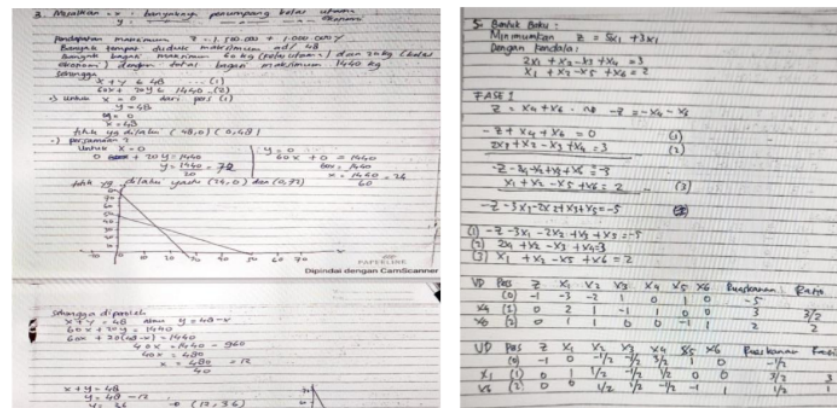 3. Misalkan x : banyaknya penumpang kelas utama
y : ekonomi
Pendapatan maksimum Z = 1.500.000 x + 1.000.000 y
Banyak tempat duduk maksimum adl 48
Banyak bagasi maksimum 60 kg (kelas utama) dan 20 kg (kelas
ekonomi) dengan total bagasi maksimum 1440 kg
sehingga
x + y ≤ 48 ... (1)
60x + 20y ≤ 1440 ...(2)
untuk x = 0 dari pers (1)
y = 48
y = 0
x = 48
titik yg dilalui (48,0) (0,48)
persamaan 2
untuk x = 0
0 + 20y = 1440
y = 1440 = 72
20
y = 0
60x + 0 = 1440
60x = 1440
x = 1440 = 24
60
titik yg dilalui yaitu (24,0) dan (0,72)
10 20 30 40 50 60 70
PAPERLINE
Dipindai dengan CamScanner
sehingga diperoleh
x + y = 48 atau y = 48-x
60x + 20y = 1440
60x + 20(48-x) = 1440
40x = 1440 - 960
40x = 480
x = 480 = 12
40
x + y = 48
y = 48 - 12
y = 36 (12, 36)
5. Bentuk Baku :
Minimumkan Z = 8x1 + 3x2
Dengan kendala :
2x1 + x2 - x3 + x4 = 3
x1 + x2 - x5 + x6 = 2
FASE 1
Z = x4 + x6 -Z = -x4 - x6
-Z + x4 + x6 = 0 (1)
2x1 + x2 - x3 + x4 = 3 (2)
-Z - 2x1 - x2 + x3 + x6 = -3
x1 + x2 - x5 + x6 = 2 (3)
-Z - 3x1 - 2x2 + x3 + x5 = -5
(1) -Z - 3x1 - 2x2 + x3 + x5 = -5
(2) 2x1 + x2 - x3 + x4 = 3
(3) x1 + x2 - x5 + x6 = 2
VD Pers Z X1 X2 X3 X4 X5 X6 Ruas kanan Rasio
(0) -1 -3 -2 1 0 1 0 -5
X4 (1) 0 2 1 -1 1 0 0 3 3/2
X6 (2) 0 1 1 0 0 -1 1 2 2
VD Pers Z X1 X2 X3 X4 X5 X6 Ruas kanan Rasio
(0) -1 0 -1/2 -1/2 3/2 1 0 -1/2
X1 (1) 0 1 1/2 -1/2 1/2 0 0 3/2 3
X6 (2) 0 0 1/2 1/2 -1/2 -1 1 1/2 1